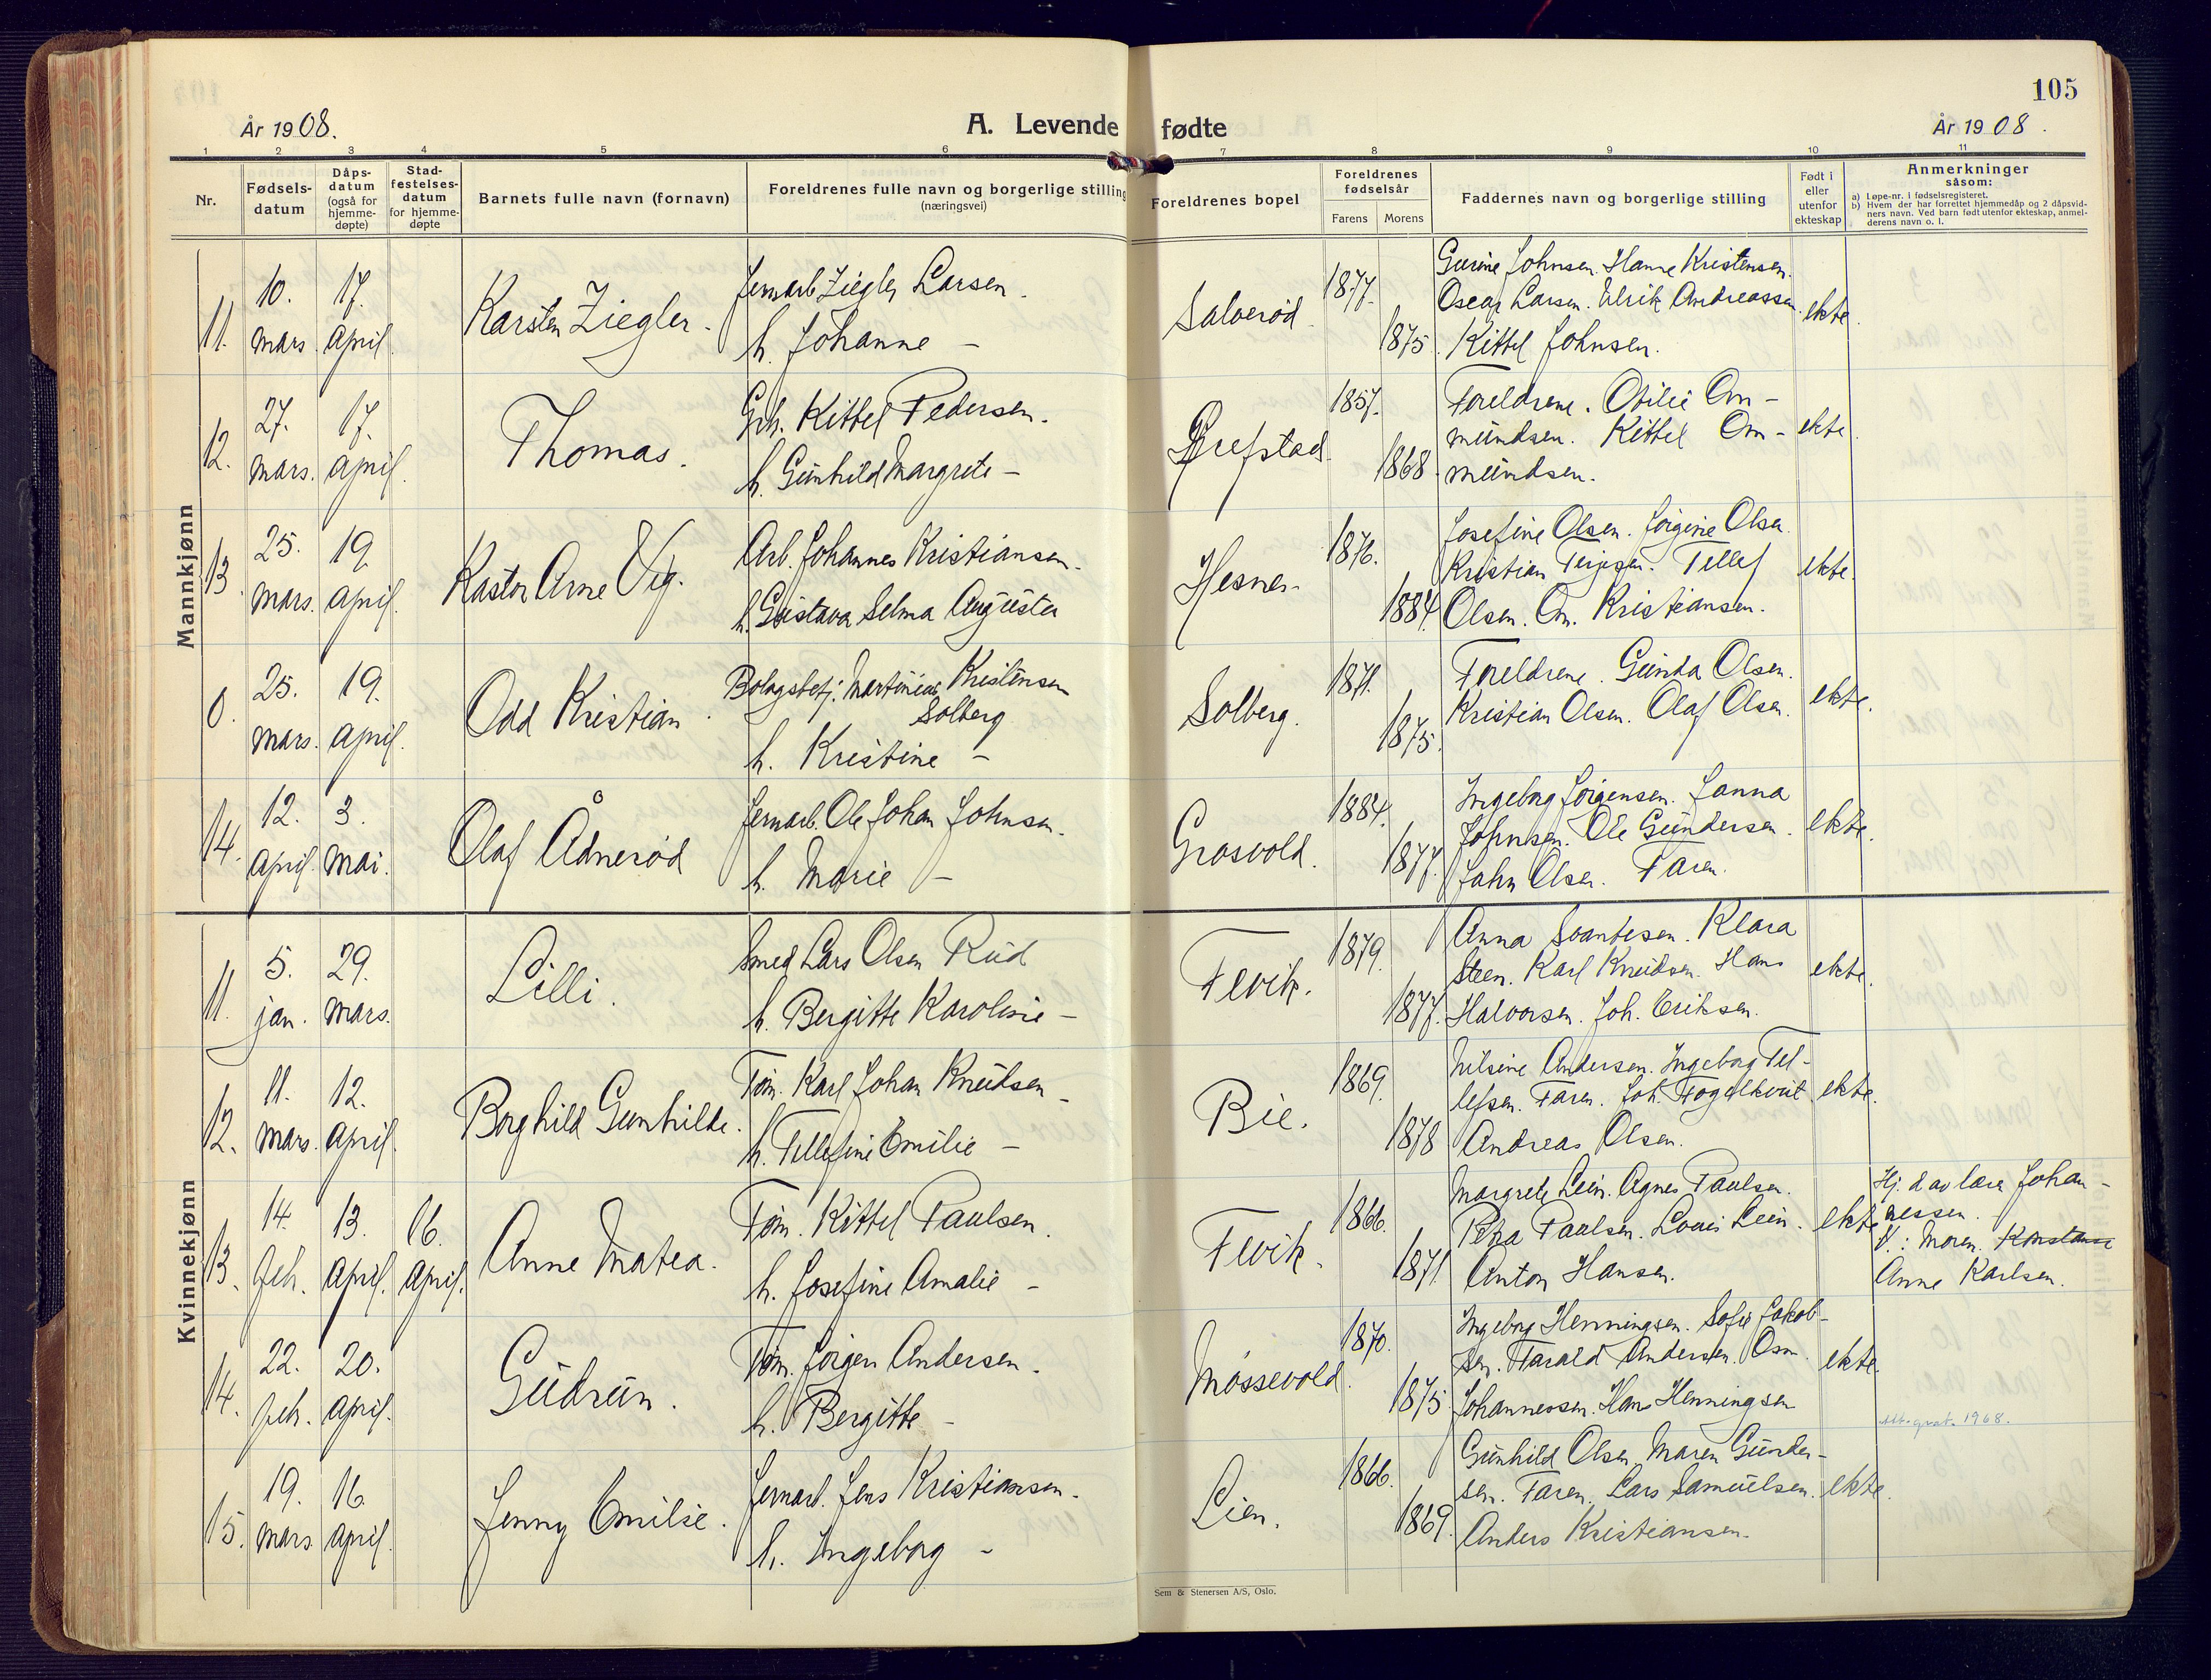 105
År 1908.
A. Levende fødte
År 1908.
1 2 3 4 5 6 7 8 9 10 11
Nr.
Fødsels-
datum
Dåps-
datum
(også for
hjemme-
døpte)
Stad-
festelses-
datum
for hjemme-
døpte
Barnets fulle navn (fornavn)
Foreldrenes fulle navn og borgerlige stilling
(næringsvei)
Foreldrenes bopel
Foreldrenes
fødselsår
Farens Morens
Faddernes navn og borgerlige stilling
Født i
eller
utenfor
ekteskap
Anmerkninger
såsom:
a) Løpe-nr. i fødselsregisteret.
b) Hvem der har forrettet hjemmedåp og 2 dåpsvid-
ners navn. Ved barn født utenfor ekteskap, anmel-
derens navn o. l.
Mannkjønn
11. 10. mars. 17. april.
Karsten Ziegler.
Jernarb. Ziegler Larsen.
h. Johanne -
Salverød
1877. 1875.
Gurine Johnsen. Hanne Kristensen.
Oscar Larsen. Ulrik Andreassen.
Kittel Johnsen.
ekte.
12. 27. mars. 17. april.
Thomas.
Grh. Kittel Pedersen.
h. Gunhild Margrete -
1857. 1868.
Foreldrene. Otilie Om-
mundsen. Kittel Om-
mundsen.
ekte.
13. 25. mars. 19. april.
Kastor Arne Vig.
Arb. Johannes Kristiansen.
h. Gustava Selma Augusta
Hesnes.
1876. 1884.
Josefine Olsen. Jørgine Olsen.
Kristian Terjesen. Tellef
Olsen. Om. Kristiansen.
ekte.
0. 25. mars. 19. april.
Odd Kristian.
Martinius Kristensen
Solberg
h. Kristine -
Solberg.
1871. 1875.
Foreldrene. Gunda Olsen.
Kristian Olsen. Olaf Olsen.
ekte.
14. 12. april. 3. mai.
Olaf Ådnerød
Jernarb. Ole Johan Johnsen.
h. Marie -
Grosvold.
1884. 1877.
Ingeborg Jørgensen. Janna
Johnsen. Ole Gundersen.
John Olsen. Faren.
ekte.
Kvinnekjønn
11. 5. jan. 29. mars.
Lilli.
Smed Lars Olsen Rud
h. Bergitte Karoline -
Fevik.
1879. 1877.
Anna Svantesen. Klara
Steen. Karl Knudsen. Hans
Halvorsen. Joh. Eriksen.
ekte.
12. 11. mars. 12. april.
Borghild Gunhilde.
Tøm. Karl Johan Knudsen
h. Tellefine Emilie -
Bie.
1869. 1878
Nilsine Andersen. Ingeborg Tel-
lefsen. Faren. Joh. Fogelkvist
Andreas Olsen.
ekte.
13. 14. feb. 13. april. 16. april.
Anne Matea.
Tøm. Kittel Paulsen.
h. Josefine Amalie -
Fevik.
1866. 1871
Margrete Lein. Agnes Paulsen.
Petra Paulsen. Louis Lein.
Anton Hansen.
ekte
Hj. d av lærer Johan-
nessen.
V.: Moren. Konstanse
Anne Karlsen.
14. 22. feb. 20. april.
Gudrun.
Tøm. Jørgen Andersen.
h. Bergitte -
Møssevold.
1870. 1875
Ingeborg Henningsen. Sofie Jakob-
sen. Tarald Andersen. Osm.
Johannessen. Hans Henningsen
ekte.
1968.
15. 19. mars. 16. april.
Jenny Emilie.
Jernarb. Jens Kristiansen.
h. Ingeborg -
Lien.
1866. 1869.
Gunhild Olsen. Maren Gunder-
sen. Faren. Lars Samuelsen.
Anders Kristiansen.
ekte.
Sem & Stenersen A/S, Oslo.